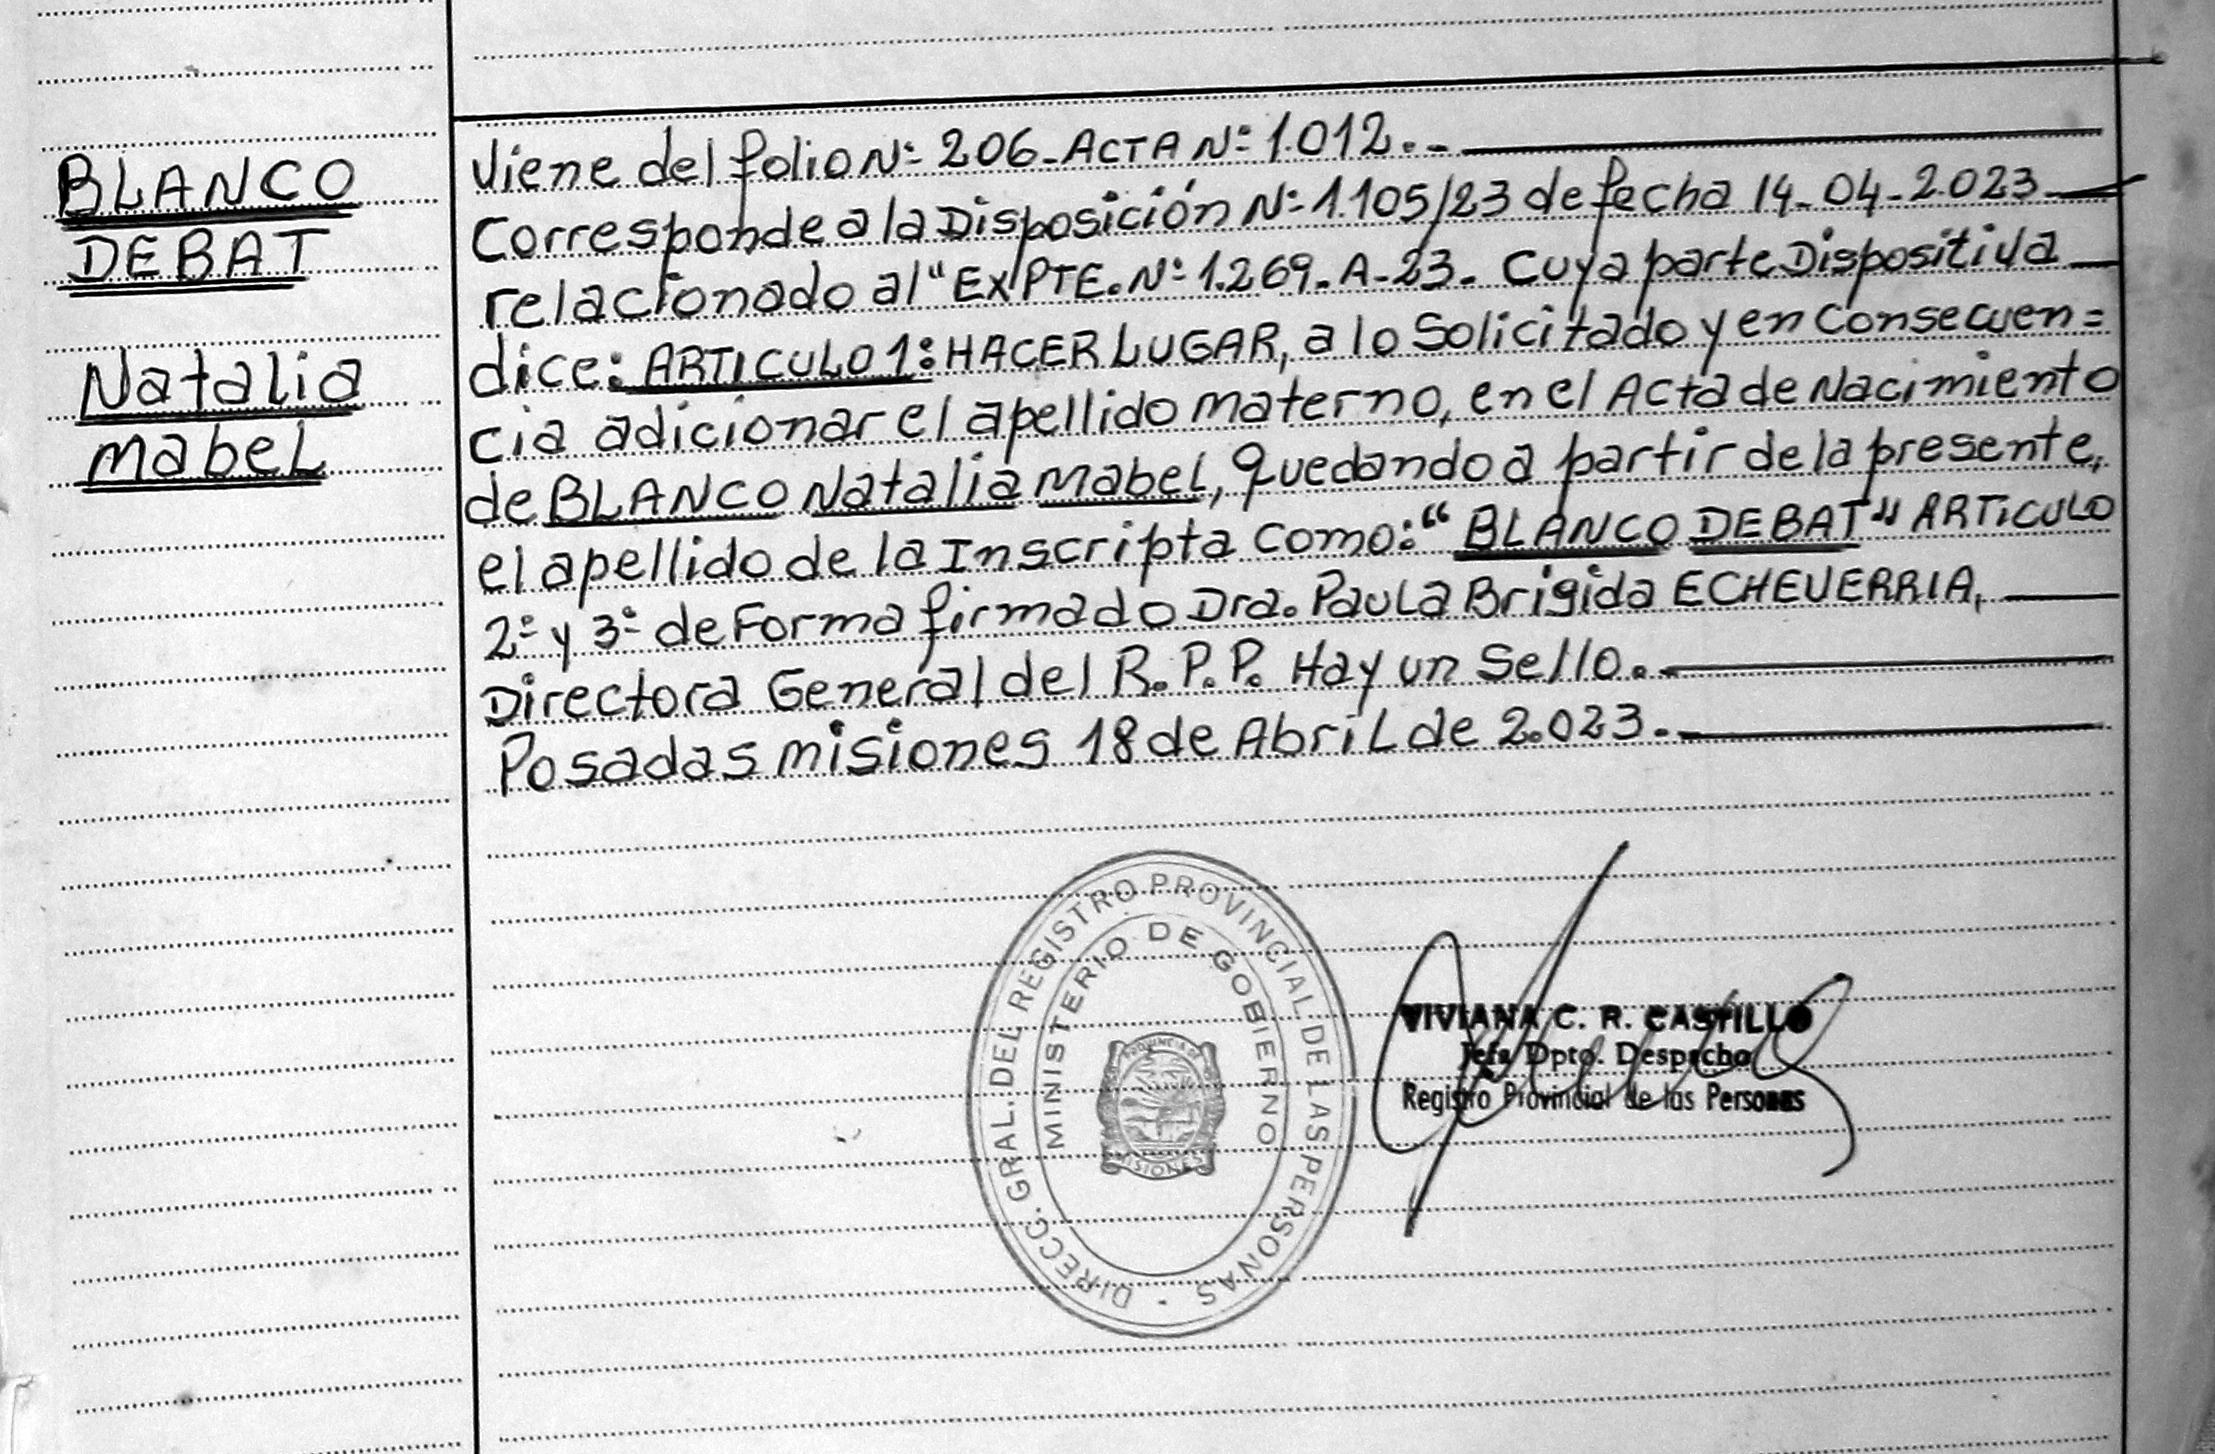 BLANCO
DEBAT
Natalia
mabeL
Viene del folio Nº 206-ACTA Nº 1.012.-
Corresponde a la Disposición Nº 1.105/23 de fecha 14-04-2.023
relacionado al "EXPTE. Nº 1.269.A-23. Cuya parte Dispositiva
dice: ARTICULO 1: HACER LUGAR, a lo Solicitado y en Consecuen=
cia adicionar el apellido materno, en el Acta de Nacimiento
de BLANCO Natalia mabel, quedando a partir de la presente,
el apellido de la Inscripta como: "BLANCO DEBAT" ARTICULO
2º y 3º de Forma firmado Dra. Paula Brigida ECHEVERRIA,
Directora General del R.P.P. Hay un Sello.-
Posadas misiones 18 de Abril de 2.023.-
DIRECC. GRAL. DEL REGISTRO PROVINCIAL DE LAS PERSONAS -
MINISTERIO DE GOBIERNO
PROVINCIA DE
MISIONES
VIVIANA C. R. CASTILLO
Jefa Dpto. Despacho
Registro Provincial de las Personas